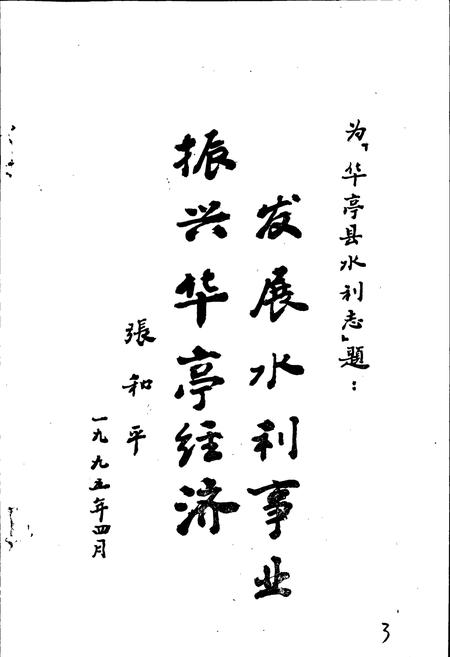 为「华亭县水利志」题：
发展水利事业
振兴华亭经济
張和平
一九九五年四月
3